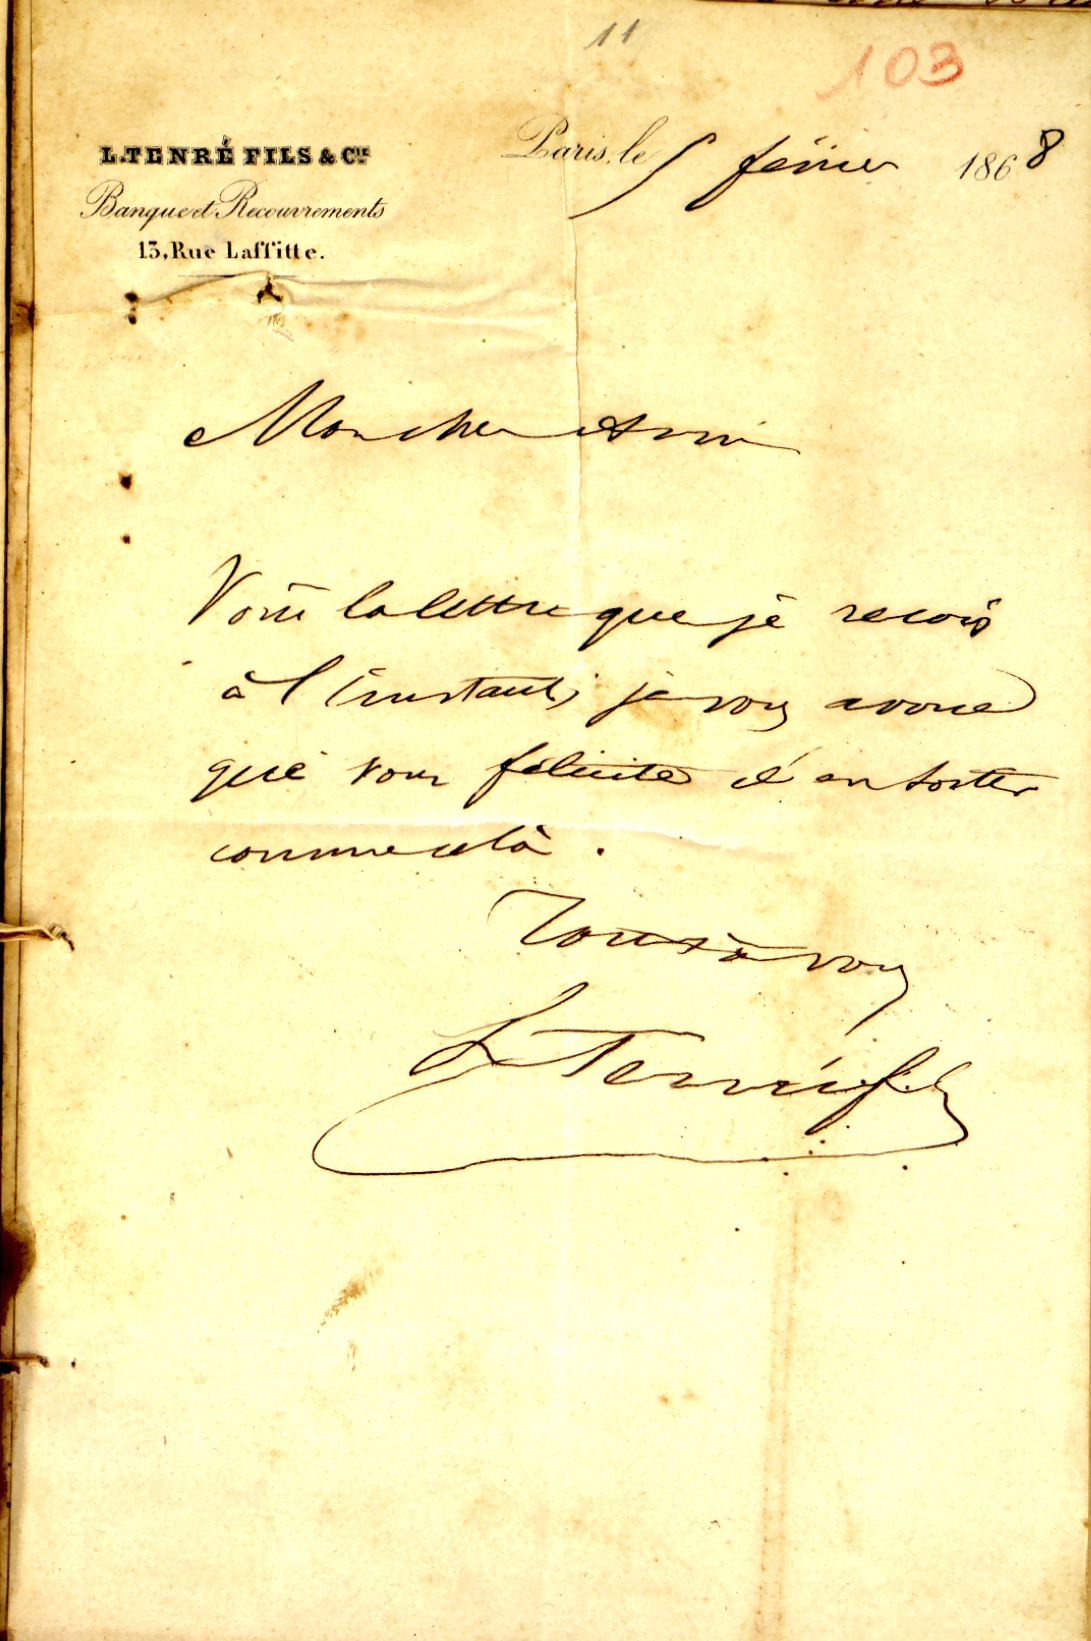 11
103
L. TENRÉ FILS & CIE
Banque et Recouvrements
13, Rue Laffitte.
Paris, le 5 février 1868
Mon cher Ami
Voici la lettre que je reçois
à l'instant, je vous avoue
que vous félicite d'en sortir
comme cela.
Tout à vous
L Tenré fils